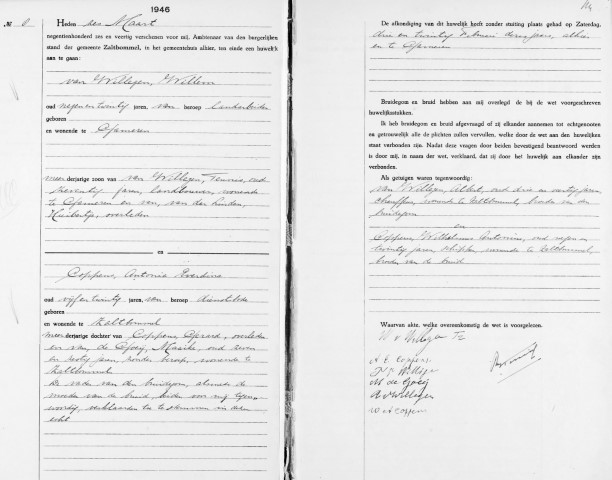 1946
№ 8
Heden zes Maart
negentienhonderd zes en veertig verschenen voor mij, Ambtenaar van den burgerlijken
stand der gemeente Zaltbommel, in het gemeentehuis alhier, ten einde een huwelijk
aan te gaan:
van Willigen, Willem
oud negen en twintig jaren, van beroep landarbeider
geboren
en wonende te Gameren
meerderjarige zoon van van Willigen, Teunis, oud
zeventig jaren, landbouwer, wonende
te Gameren en van, van der Linden,
Huibertje, overleden
en
Coppens, Antonia Everdina
oud vijf en twintig jaren, van beroep
geboren
en wonende te Zaltbommel
meerderjarige dochter van Coppens, Gerard, overleden
en van, de Gooij, Maaike, oud zeven
en zestig jaren, zonder beroep, wonende te
Zaltbommel
De vader van den bruidegom, alsmede de
moeder van de bruid, beiden voor mij tegen-
woordig, verklaarden toe te stemmen in dezen
echt
De afkondiging van dit huwelijk heeft zonder stuiting plaats gehad op Zaterdag,
drie en twintig Februari dezes jaars, alhier
en te Gameren
Bruidegom en bruid hebben aan mij overlegd de bij de wet voorgeschreven
huwelijksstukken.
Ik heb bruidegom en bruid afgevraagd of zij elkander aannemen tot echtgenooten
en getrouwelijk alle de plichten zullen vervullen, welke door de wet aan den huwelijken
staat verbonden zijn. Nadat deze vragen door beiden bevestigend beantwoord werden
is door mij, in naam der wet, verklaard, dat zij door het huwelijk aan elkander zijn
verbonden.
Als getuigen waren tegenwoordig:
van Willigen, Albert, oud drie en veertig jaren
chauffeur, wonende te Zaltbommel, broeder van den
bruidegom
en
Coppens, Wilhelmus Antonius, oud negen en
twintig jaren, schipper, wonende te Zaltbommel,
broeder van de bruid
Waarvan akte, welke overeenkomstig de wet is voorgelezen.
W v Willigen Tz
A E Coppens
T v Willigen
M de Gooij
A v Willigen
W A Coppens